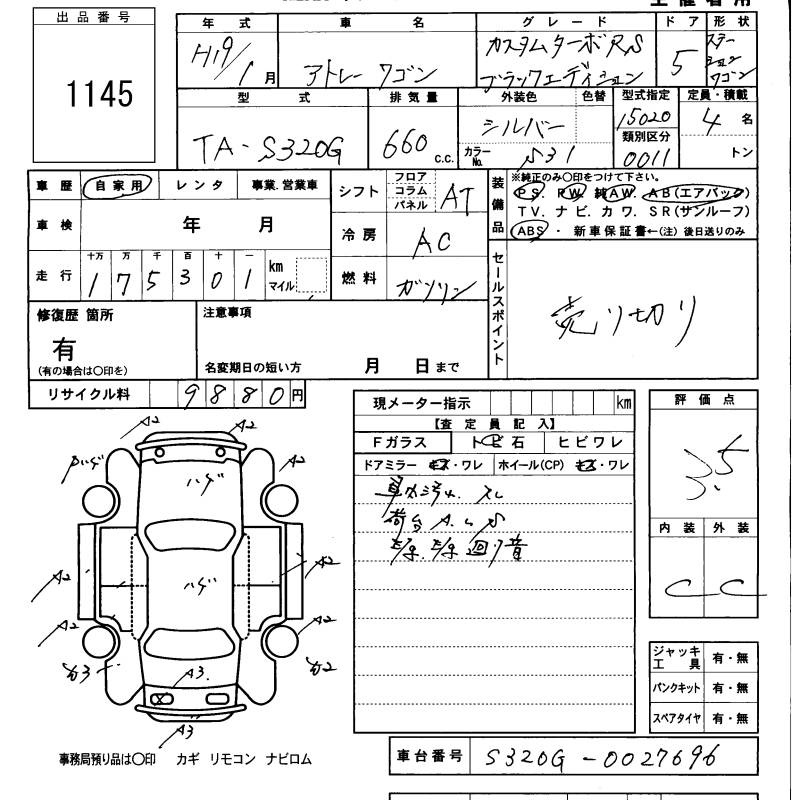 出品番号
1145
年式
H19/1月
車名
アトレーワゴン
グレード
カスタムターボRS
ブラックエディション
ドア
5
形状
ステーションワゴン
型式
TA-S320G
排気量
660 c.c.
外装色
シルバー
色替
カラーNo.
S31
型式指定
15020
類別区分
0011
定員・積載
4名
トン
車歴
自家用
レンタ
事業.営業車
車検
年 月
走行
十万 万 千 百 十 一
1 7 5 3 0 1
km
マイル
シフト
フロア
コラム
パネル
AT
冷房
AC
燃料
ガソリン
装備品
※純正のみ○印をつけて下さい。
PS. PW. 純AW. AB(エアバック)
TV. ナビ. カワ. SR(サンルーフ)
ABS ・ 新車保証書←(注)後日送りのみ
セールスポイント
売り切り
修復歴 箇所
有
(有の場合は○印を)
注意事項
名変期日の短い方 月 日まで
リサイクル料
9880円
現メーター指示
km
【査定員記入】
Fガラス
トビ石
ヒビワレ
ドアミラー キズ・ワレ
ホイール(CP) キズ・ワレ
荷台 A. S
評価点
3.5
内装
外装
C
C
ジャッキ
工具
有・無
パンクキット
有・無
スペアタイヤ
有・無
A2
A2
ハゲ
ハゲ
A2
A2
A2
ハゲ
A2
A2
A3.
A3
事務局預り品は○印 カギ リモコン ナビロム
車台番号
S320G-0027696